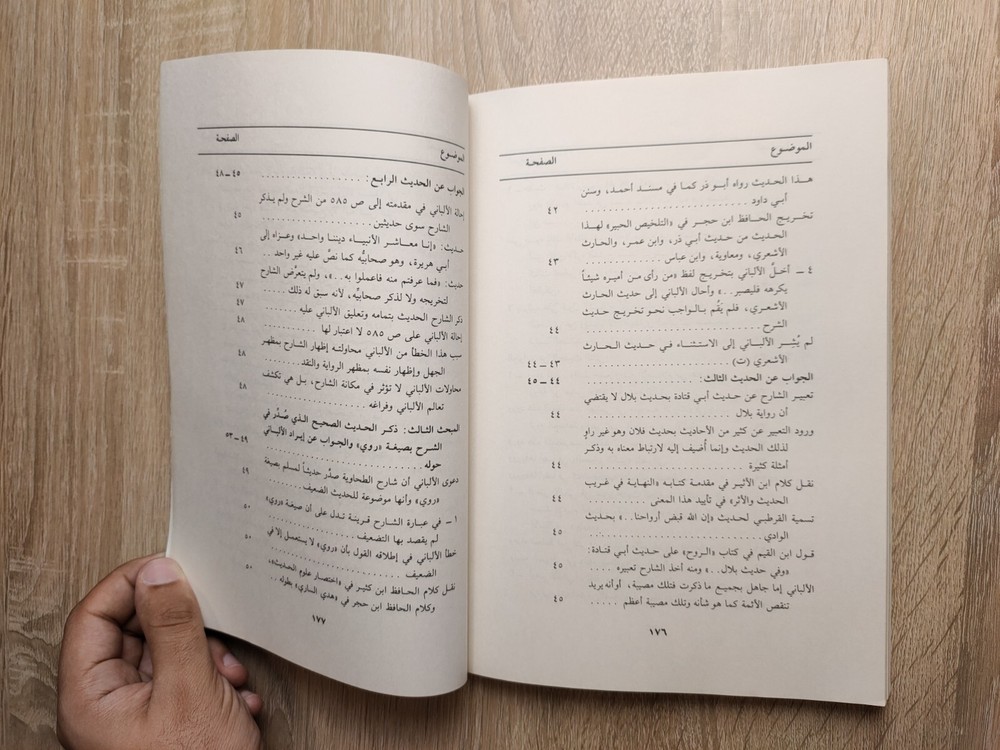 الموضوع الصفحة
هذا الحديث رواه أبو ذر كما في مسند أحمد، وسنن
أبي داود . . . . . . . . . . . . . . . . . . . . ٤٢
تخريج الحافظ ابن حجر في «التلخيص الحبير» لهذا
الحديث من حديث أبي ذر، وابن عمر، والحارث
الأشعري، ومعاوية، وابن عباس . . . . . . . . . . ٤٣
٤ ـ أخلّ الألباني بتخريج لفظ «من رأى من أميره شيئاً
يكرهه فليصبر..» وأحال الألباني إلى حديث الحارث
الأشعري، فلم يَقُم بالواجب نحو تخريج حديث
الشرح . . . . . . . . . . . . . . . . . . . . ٤٤
لم يُشِر الألباني إلى الاستثناء في حديث الحارث
الأشعري (ت) . . . . . . . . . . . . . . . . ٤٣ ـ ٤٤
الجواب عن الحديث الثالث: . . . . . . . . . . . . ٤٤ ـ ٤٥
تعبير الشارح عن حديث أبي قتادة بحديث بلال لا يقتضي
أن رواية بلال . . . . . . . . . . . . . . . . ٤٤
ورود التعبير عن كثير من الأحاديث بحديث فلان وهو غير راوٍ
لذلك الحديث وإنما أُضيف إليه لارتباط معناه به وذكر
أمثلة كثيرة . . . . . . . . . . . . . . . . . . ٤٤
نقل كلام ابن الأثير في مقدمة كتابه «النهاية في غريب
الحديث والأثر» في تأييد هذا المعنى . . . . . . . . ٤٤
تسمية القرطبي لحديث «إن الله قبض أرواحنا..» بحديث
الوادي . . . . . . . . . . . . . . . . . . . . ٤٥
قول ابن القيم في كتاب «الروح» على حديث أبي قتادة:
«وفي حديث بلال..» ومنه أخذ الشارح تعبيره . . . . ٤٥
الألباني إما جاهل بجميع ما ذكرت فتلك مصيبة، أو أنه يريد
تنقص الأئمة كما هو شأنه وتلك مصيبة أعظم . . . . . ٤٥
١٧٦
الموضوع الصفحة
الجواب عن الحديث الرابع: . . . . . . . . . . . . ٤٥ ـ ٤٨
إحالة الألباني في مقدمته إلى ص ٥٨٥ من الشرح ولم يذكر
الشارح سوى حديثين . . . . . . . . . . . . . . ٤٥
حديث: «إنا معاشر الأنبياء ديننا واحد» وعزاه إلى
أبي هريرة، وهو صحابيُّه كما نصّ عليه غير واحد . . ٤٦
حديث: «فما عرفتم منه فاعملوا به..»، ولم يتعرّض الشارح
لتخريجه ولا لذكر صحابيِّه، لأنه سبق له ذلك . . . . ٤٧
ذكر الشارح الحديث بتمامه وتعليق الألباني عليه . . . . ٤٧
إحالة الألباني على ص ٥٨٥ لا اعتبار لها . . . . . . . ٤٨
سبب هذا الخطأ من الألباني محاولته إظهار الشارح بمظهر
الجهل وإظهار نفسه بمظهر الرواية والنقد . . . . . . ٤٨
محاولات الألباني لا تؤثر في مكانة الشارح، بل هي تكشف
تعالم الألباني وفراغه . . . . . . . . . . . . . . ٤٨
المبحث الثالث: ذكر الحديث الصحيح الذي صُدِّر في
الشرح بصيغة «روي» والجواب عن إيراد الألباني
حوله . . . . . . . . . . . . . . . . . . . . ٤٩ ـ ٥٣
دعوى الألباني أن شارح الطحاوية صدَّر حديثاً لمسلم بصيغة
«روي» وأنها موضوعة للحديث الضعيف . . . . . . ٤٩
١ ـ في عبارة الشارح قرينة تدل على أن صيغة «روي»
لم يقصد بها التضعيف . . . . . . . . . . . . . . ٥٠
خطأ الألباني في إطلاقه القول بأن «روي» لا يستعمل إلا في
الضعيف . . . . . . . . . . . . . . . . . . . . ٥٠
نقل كلام الحافظ ابن كثير في «اختصار علوم الحديث»،
وكلام الحافظ ابن حجر في «هدي الساري» بطوله . . ٥٠
١٧٧